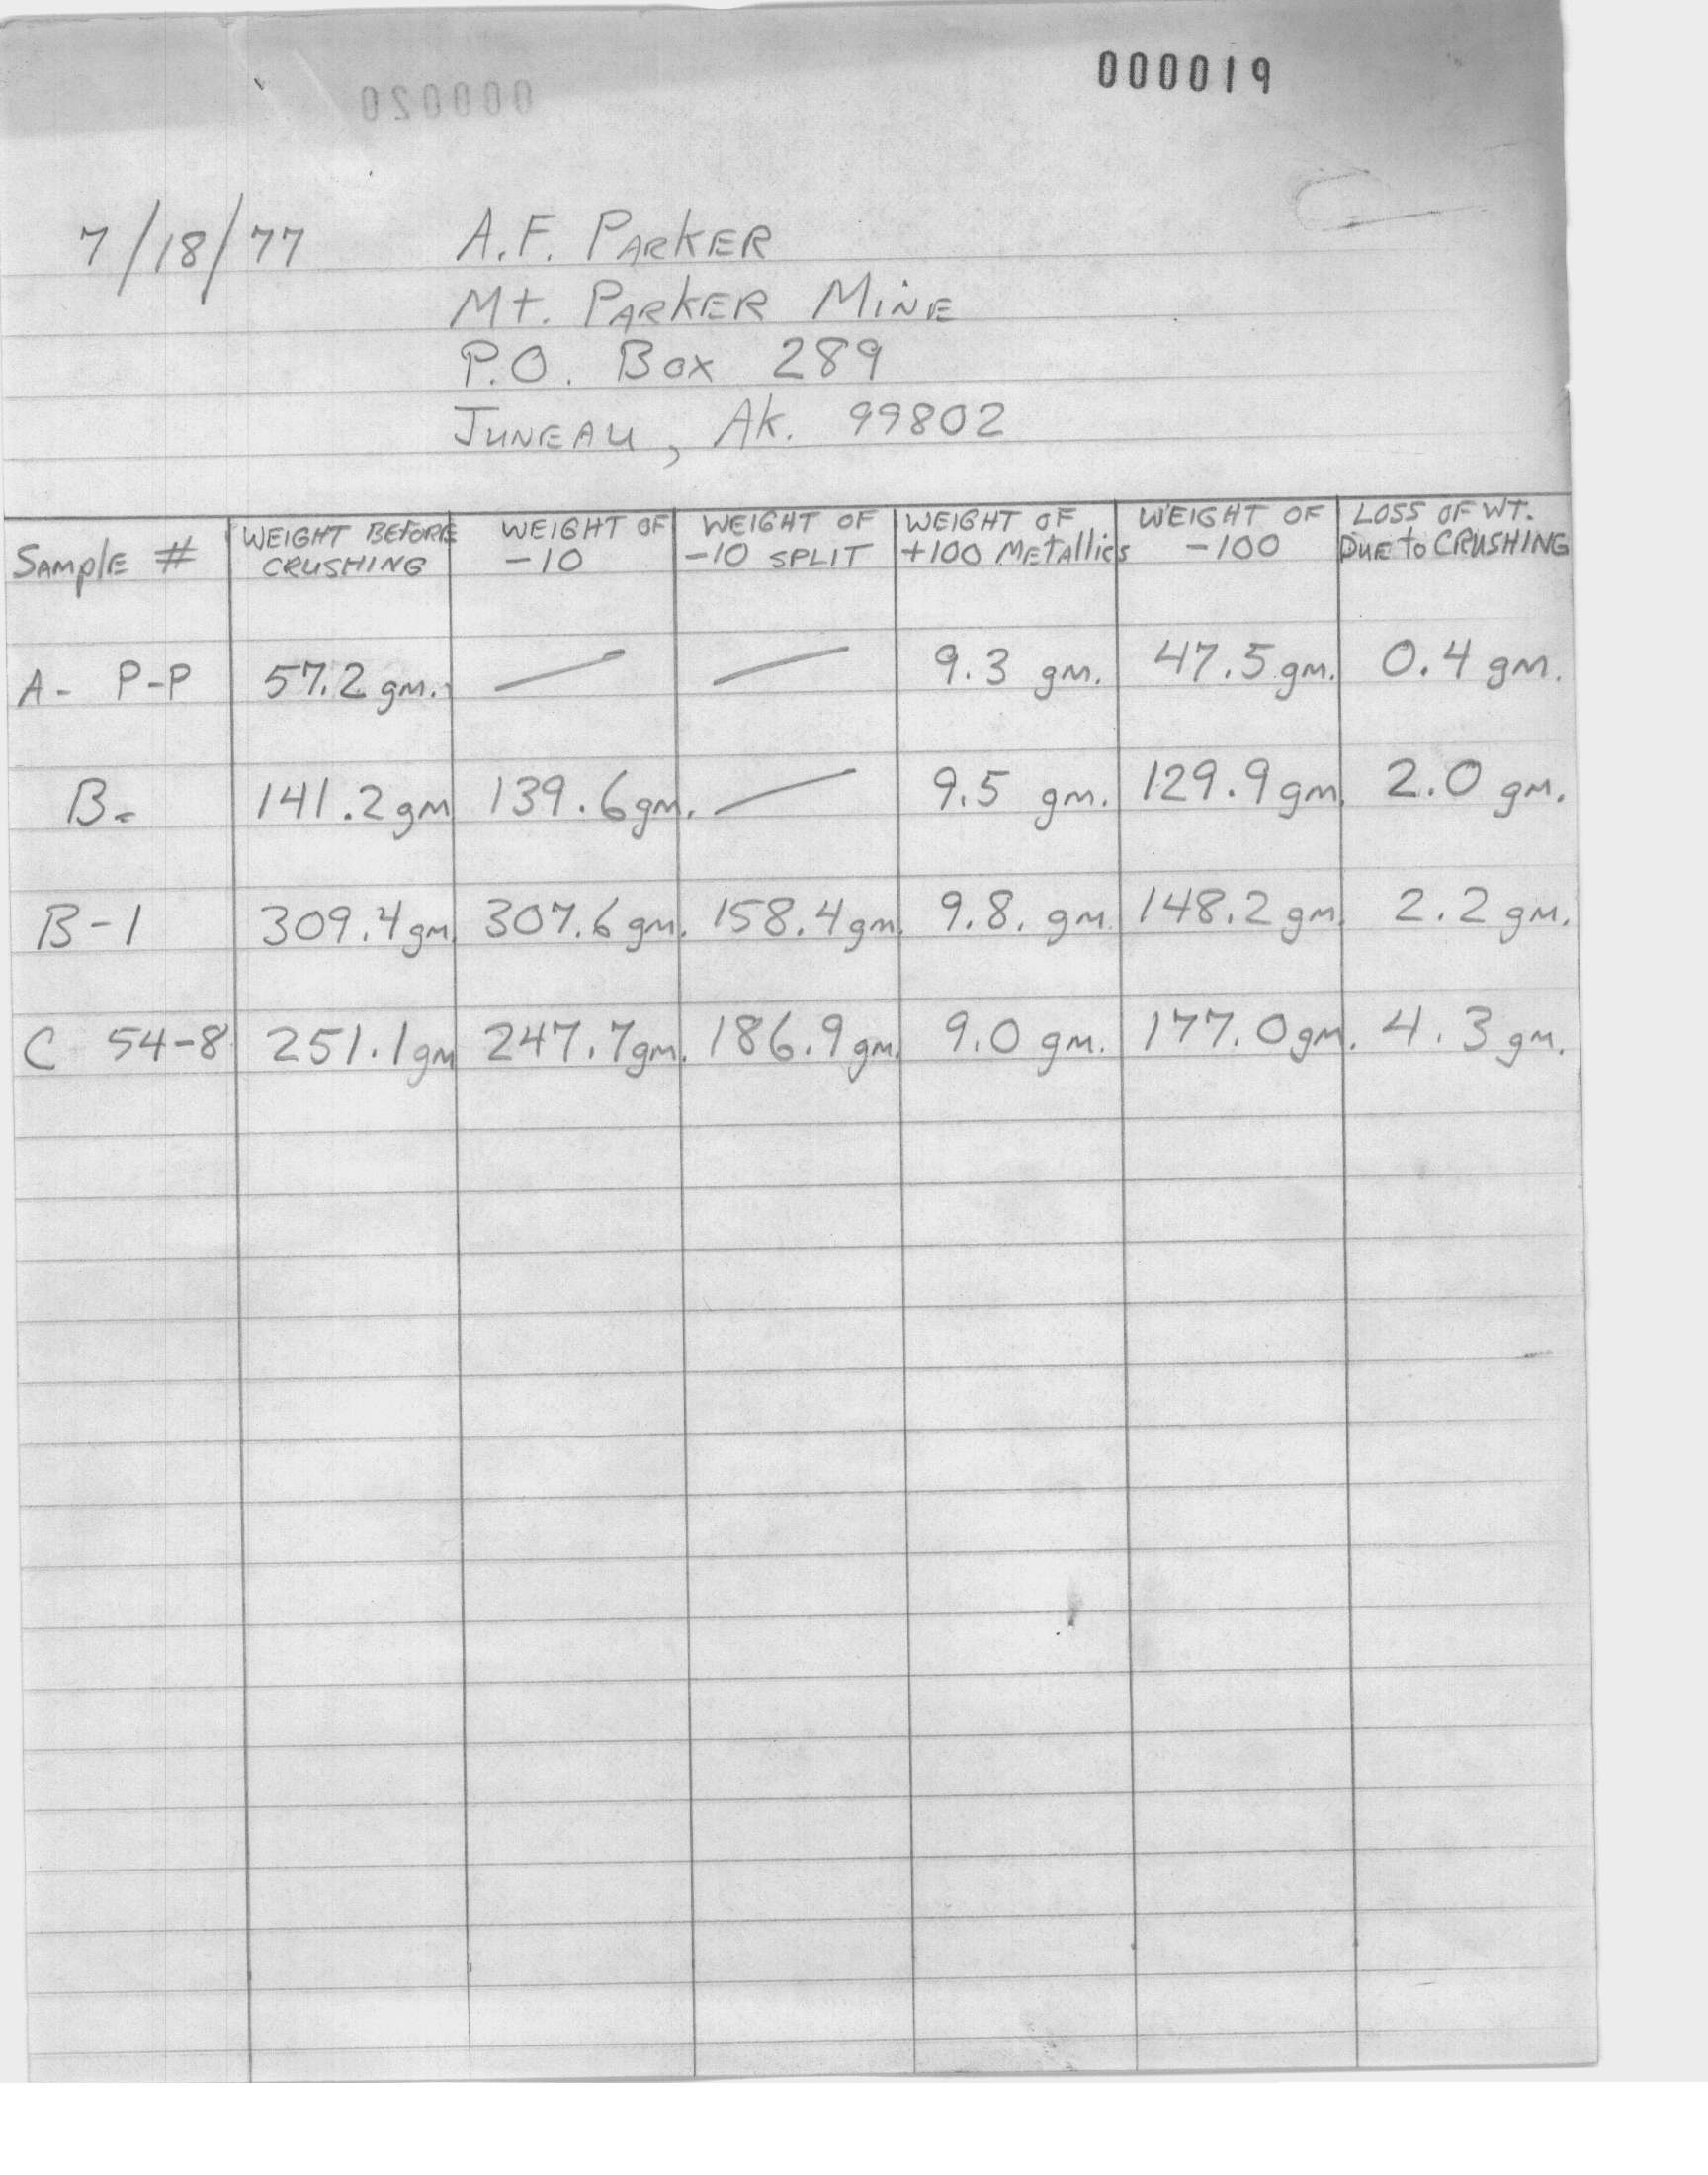 000019
000020
7/18/77 A.F. PARKER
Mt. PARKER MINE
P.O. Box 289
JUNEAU, AK. 99802
SAMPLE # WEIGHT BEFORE CRUSHING WEIGHT OF -10 WEIGHT OF -10 SPLIT WEIGHT OF +100 METALLICS WEIGHT OF -100 LOSS OF WT. DUE to CRUSHING
A- P-P 57.2 gm. — — 9.3 gm. 47.5 gm. 0.4 gm.
B- 141.2 gm 139.6 gm. — 9.5 gm. 129.9 gm. 2.0 gm.
B-1 309.4 gm. 307.6 gm. 158.4 gm. 9.8. gm. 148.2 gm. 2.2 gm.
C 54-8 251.1 gm 247.7 gm. 186.9 gm. 9.0 gm. 177.0 gm. 4.3 gm.